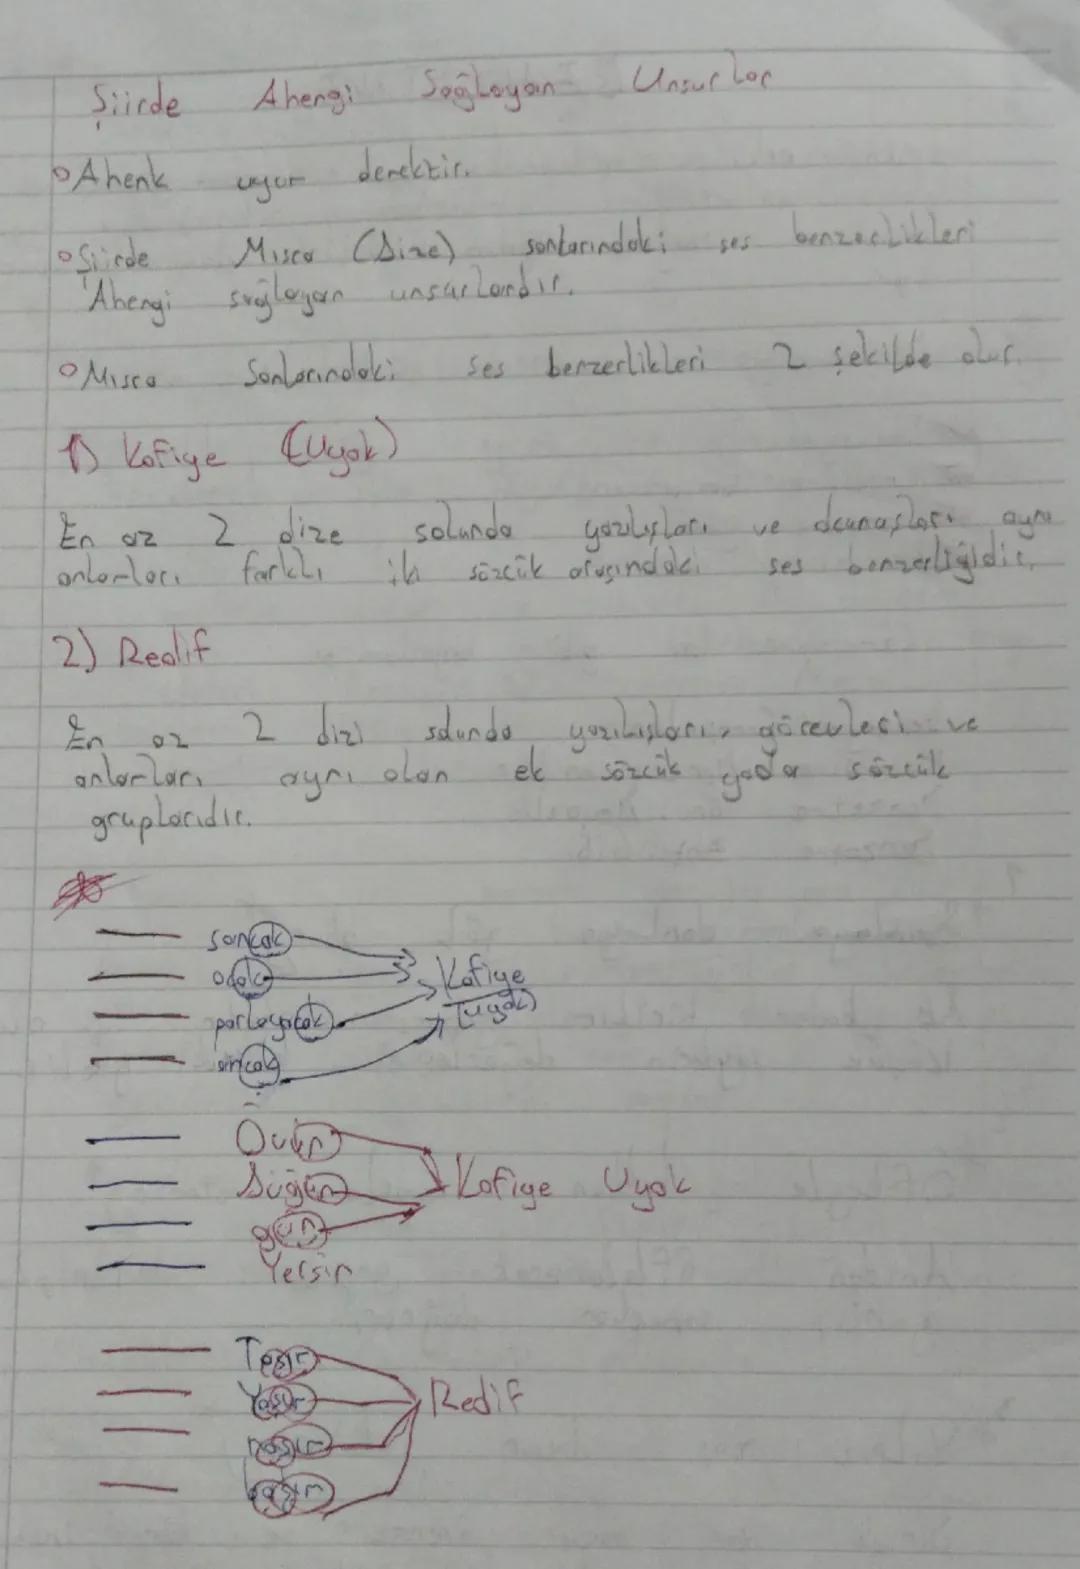 Şiirde Ahengi Sağlayan Unsurlar
Ahenk uyum demektir.
Şiirde Mısra (Dize) sonlarındaki ses benzerlikleri
Ahengi sağlayan unsurlardır.
Mısra Sonlarındaki ses benzerlikleri 2 şekilde olur.
1) Kafiye (Uyak)
En az 2 dize solunda yazılışları ve okunuşları aynı
anlamları farklı iki sözcük arasındaki ses benzerliğidir.
2) Redif
En az 2 dizi solunda yazılışları, görevleri ve
anlamları aynı olan ek sözcük yada sözcük
gruplarıdır.
sancak
ocak
parlayacak
ancak
Kafiye
(uyak)
Övün
Düğün
gün
Yersin
Kafiye Uyak
Redif